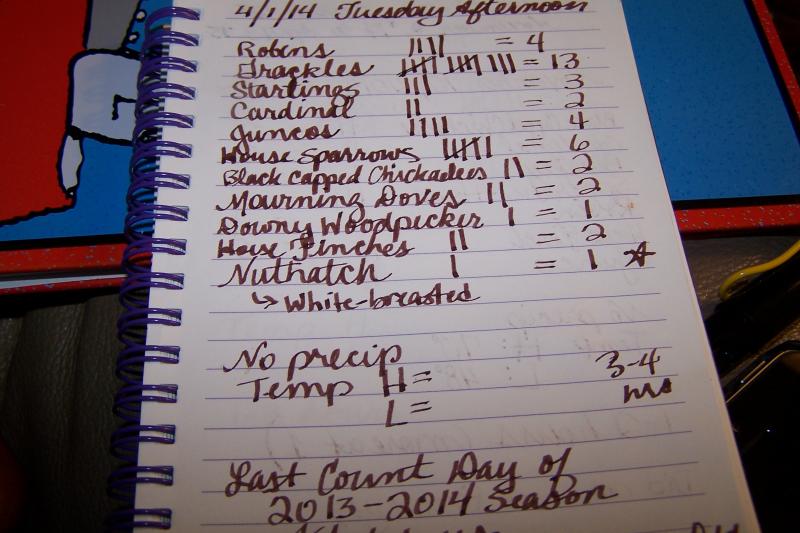 4/1/14 Tuesday Afternoon
Robins |||| = 4
Grackles |||| |||| ||| = 13
Starlings ||| = 3
Cardinal || = 2
Juncos |||| = 4
House Sparrows |||| | = 6
Black Capped Chickadees || = 2
Mourning Doves || = 2
Downy Woodpicker | = 1
House Finches || = 2
Nuthatch | = 1 ☆
↳ White-breasted
No precip
Temp H= 3-4
L= hrs
Last Count Day of
2013-2014 Season